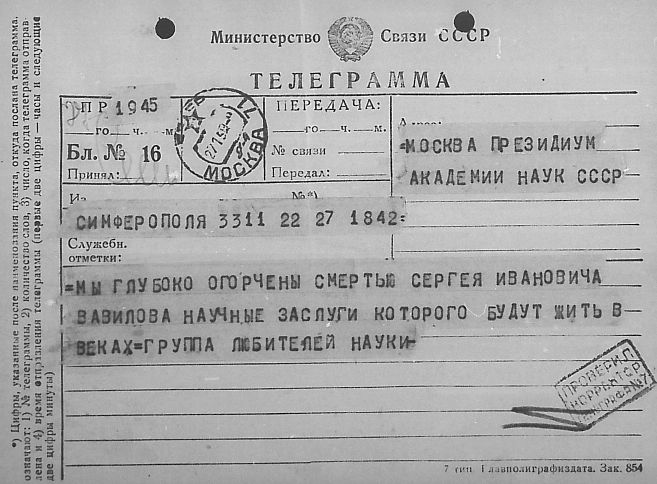 Министерство Связи СССР
ТЕЛЕГРАММА
ПР 1945
го ч. м.
Бл. № 16
Принял:
МОСКВА
ПЕРЕДАЧА:
го ч. м.
№ связи
Передал:
МОСКВА ПРЕЗИДИУМ
АКАДЕМИИ НАУК СССР
Из №*)
СИМФЕРОПОЛЯ 3311 22 27 1842=
Служебн.
отметки:
=МЫ ГЛУБОКО ОГОРЧЕНЫ СМЕРТЬЮ СЕРГЕЯ ИВАНОВИЧА
ВАВИЛОВА НАУЧНЫЕ ЗАСЛУГИ КОТОРОГО БУДУТ ЖИТЬ В
ВЕКАХ=ГРУППА ЛЮБИТЕЛЕЙ НАУКИ-
ПРОВЕРИЛ
7 тип. Главполиграфиздата. Зак. 854
*) Цифры, указанные после наименования пункта, откуда послана телеграмма,
означают: 1) № телеграммы, 2) количество слов, 3) число, когда телеграмма отправ-
лена и 4) время отправления телеграммы (первые две цифры — часы и следующие
две цифры минуты)